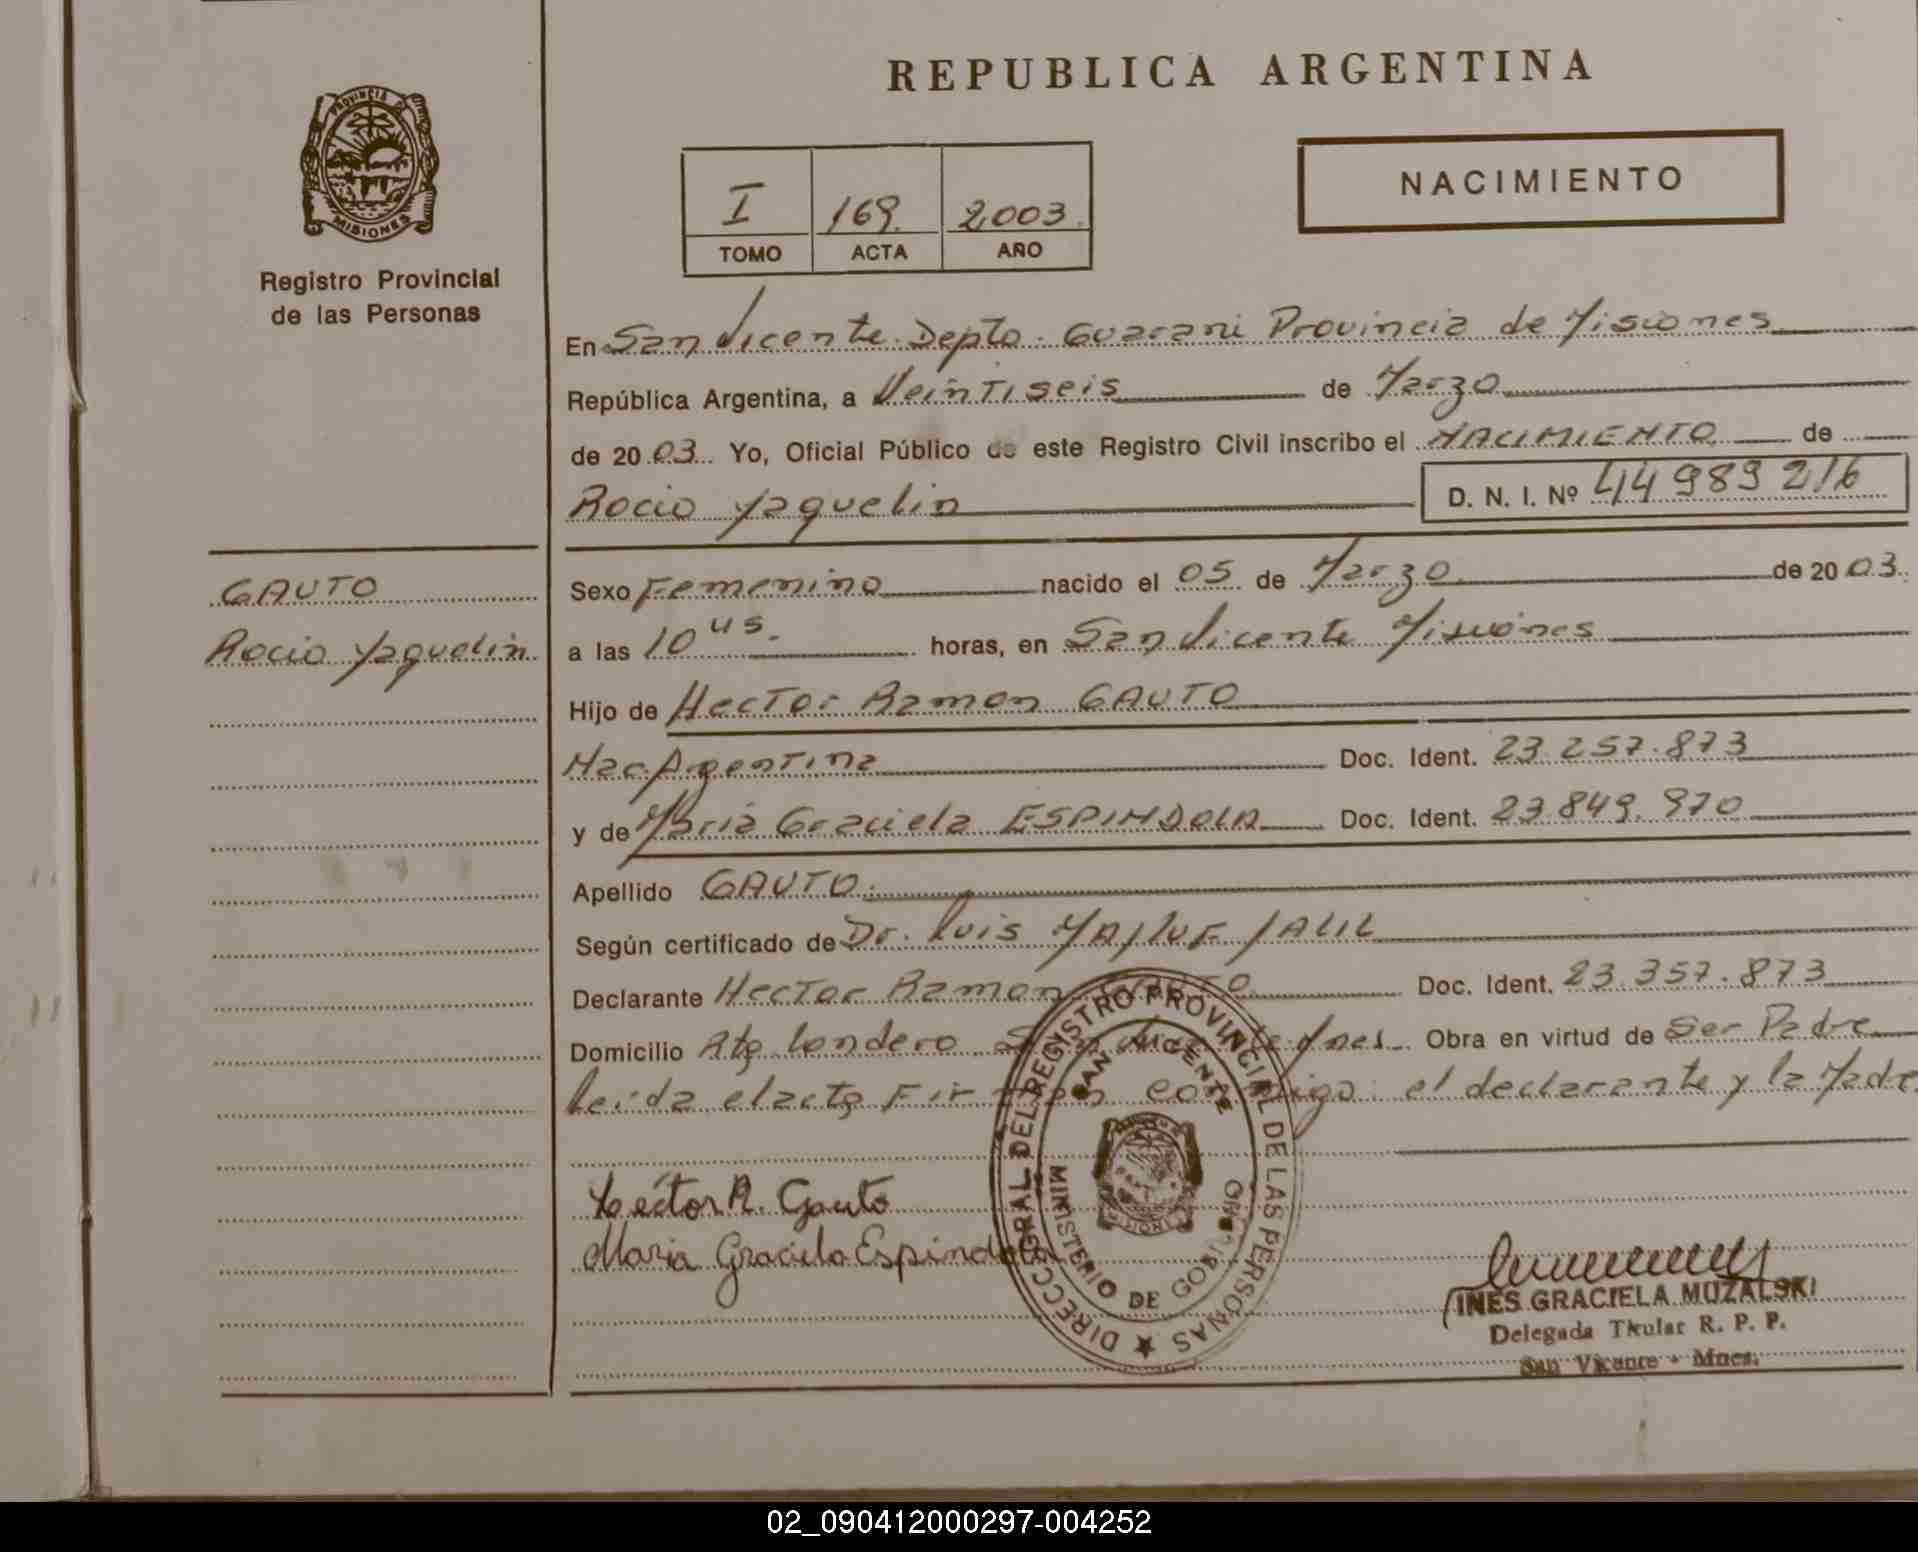 REPUBLICA ARGENTINA
PROVINCIA DE
MISIONES
Registro Provincial
de las Personas
I 169. 2,003.
TOMO ACTA AÑO
NACIMIENTO
En San Vicente. Depto. Guarani Provincia de Misiones
República Argentina, a Veintiseis de Marzo
de 20 03 Yo, Oficial Público de este Registro Civil inscribo el NACIMIENTO de
Rocio Yaquelin D. N. I. Nº 44 989 216
GAUTO
Rocio Yaquelin
Sexo Femenino nacido el 05 de Marzo de 20 03.
a las 10 45. horas, en San Vicente Misiones
Hijo de Hector Ramon GAUTO
Nac. Argentina Doc. Ident. 23.257.873
y de Maria Graciela ESPINDOLA Doc. Ident. 23.849.970
Apellido GAUTO.
Según certificado de Dr. Luis JALIL
Declarante Hector Ramon GAUTO Doc. Ident. 23.357.873
Domicilio Londero San Vicente Mnes. Obra en virtud de Ser Padre
Leida el acta Firman conmigo: el declarante y la Madre
Héctor R. Gauto
Maria Graciela Espindola
DIRECC. GRAL. DEL REGISTRO PROVINCIAL DE LAS PERSONAS
SAN VICENTE
MINISTERIO DE GOBIERNO
MISIONES
INES GRACIELA MUZALSKI
Delegada Titular R. P. P.
San Vicente - Mnes.
02_090412000297-004252